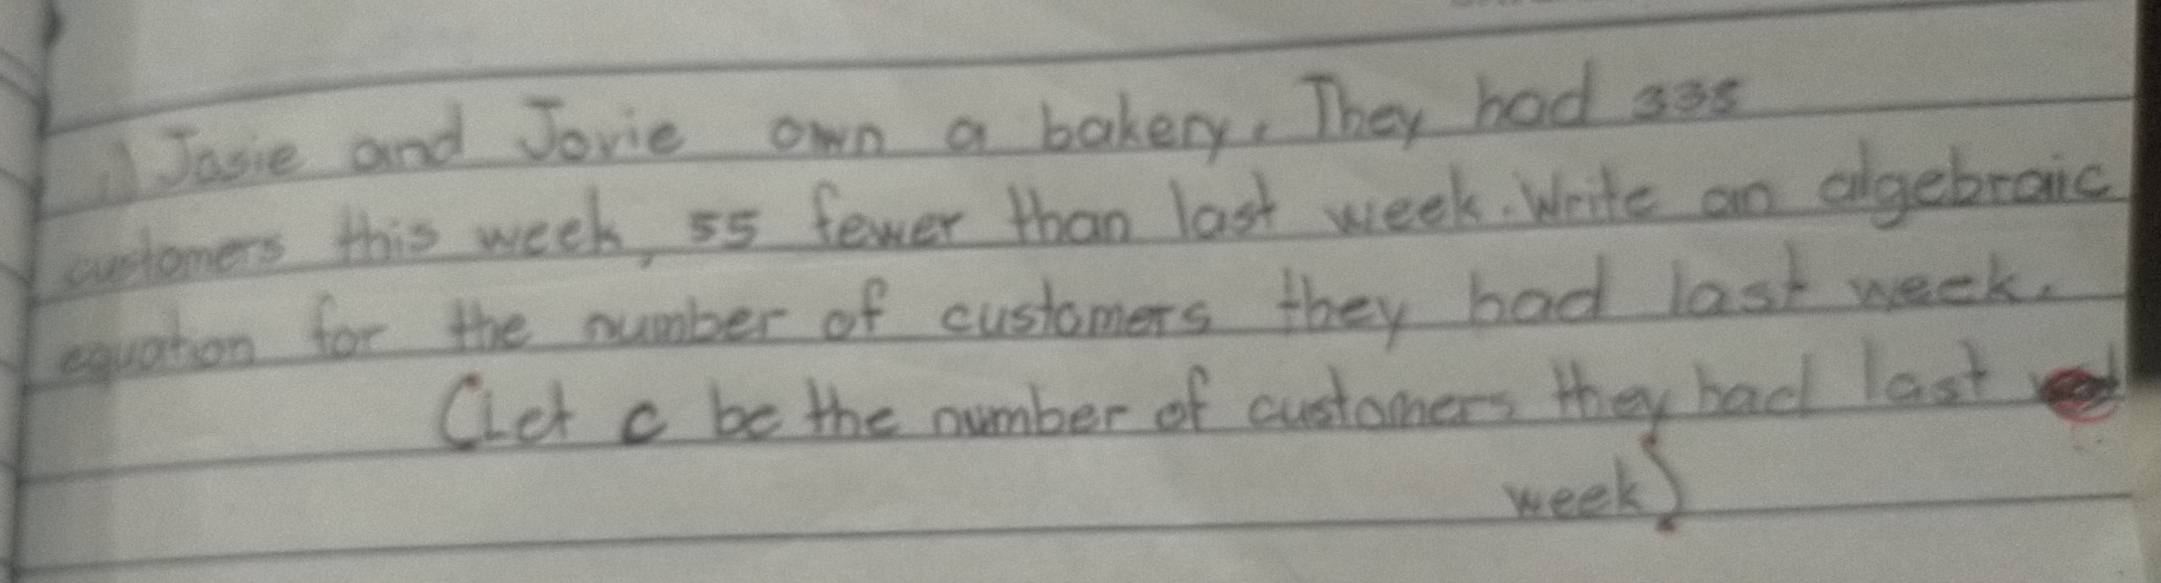 1) Josie and Jovie own a bakery. They had 335
customers this week, 55 fewer than last week. Write an algebraic
equation for the number of customers they had last week.
(Let c be the number of customers they had last
week)